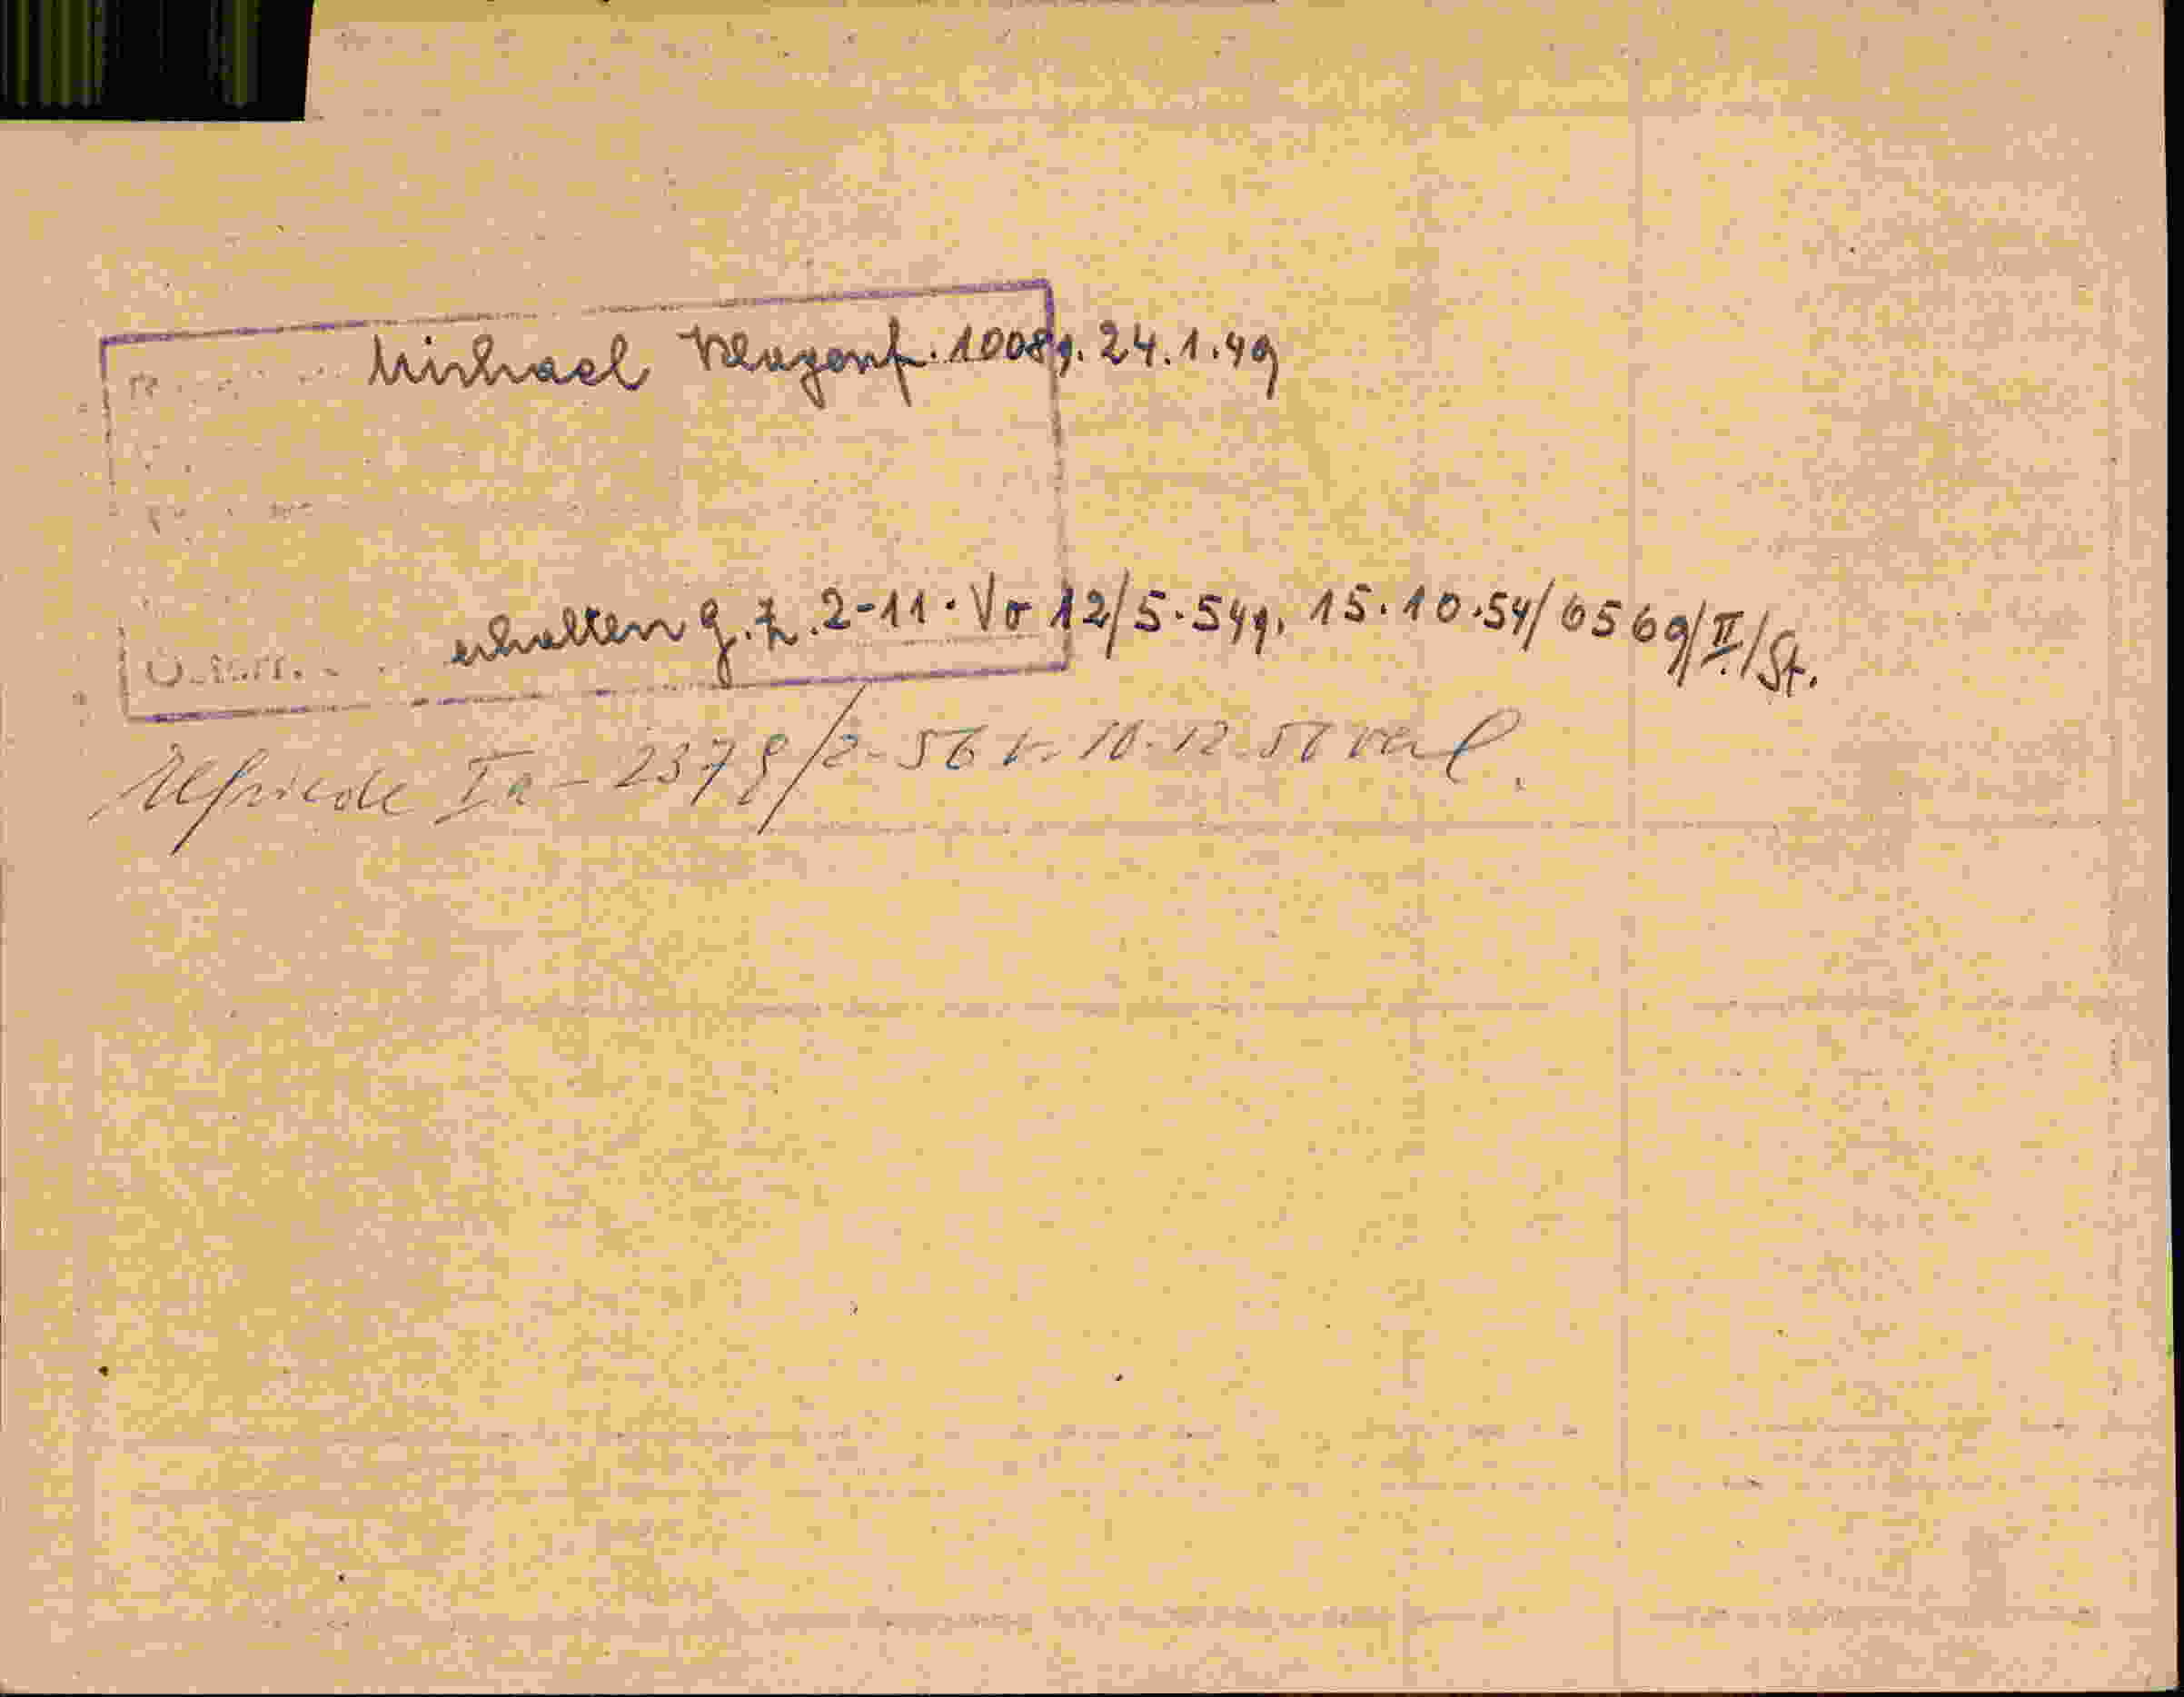 Michael Klagenf. 1008g. 24.1.49
erhalten g. Z. 2-11. Vo 12/5.54g. 15.10.54/6569/II./St.
Elfriede Ia - 2378/2-56 v. 10.12.57 verl.